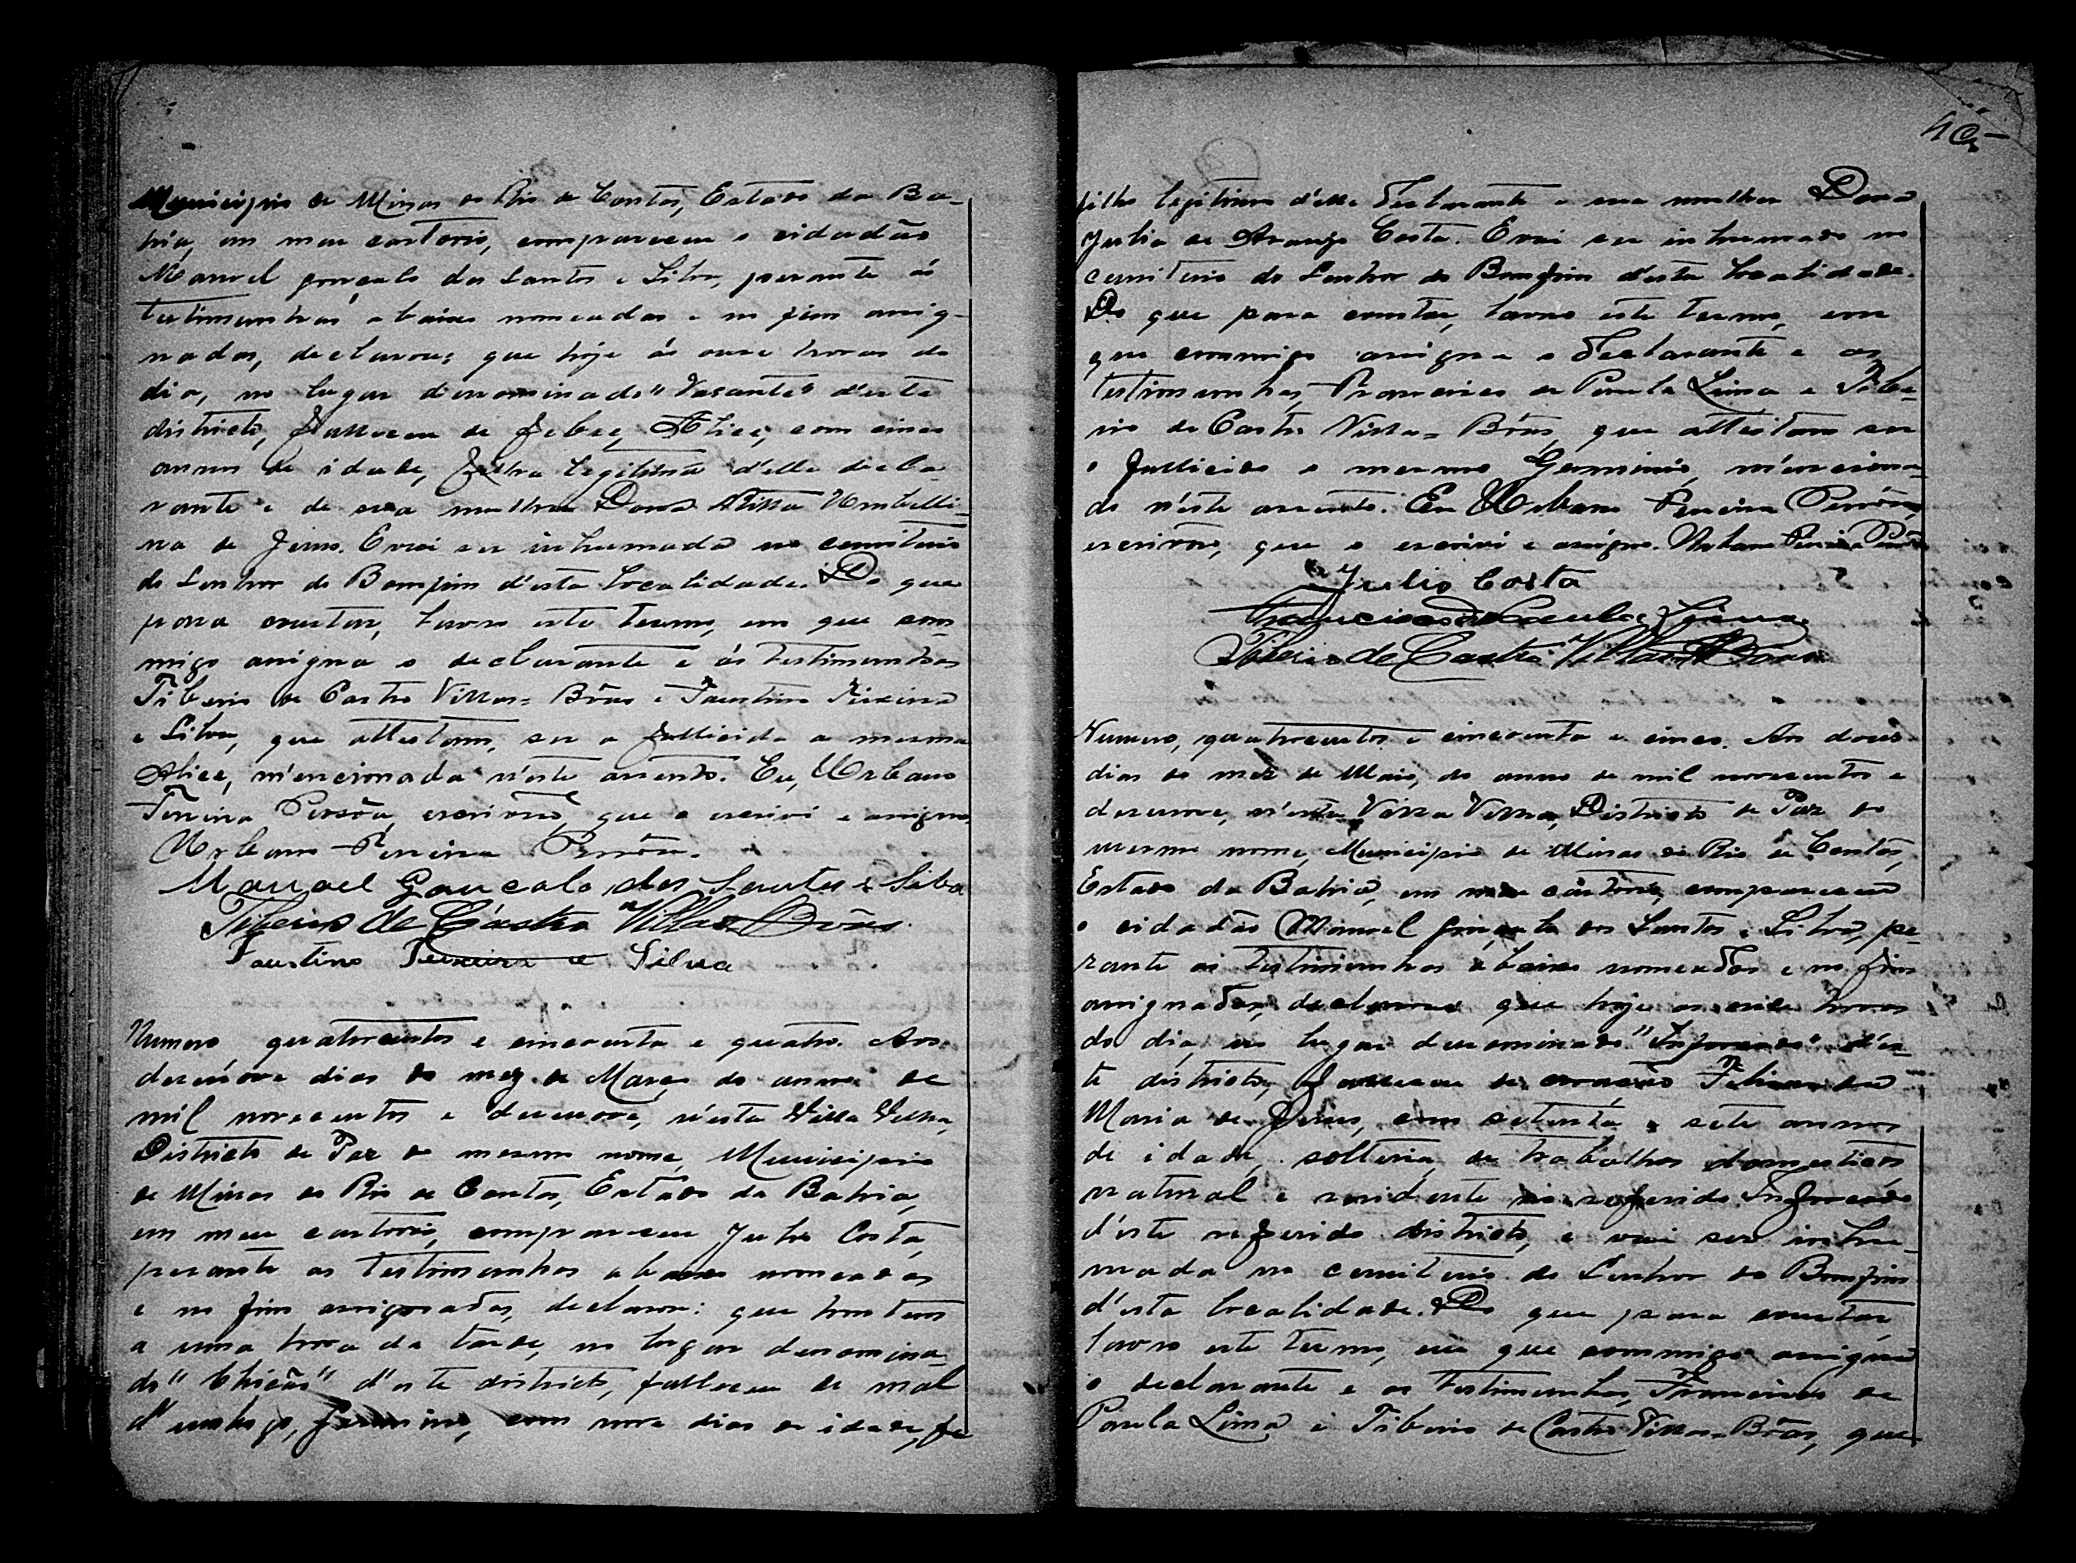 Municipio de Minas do Rio de Contas, Estado da Ba-
hia, em meu cartorio, compareceu o cidadão
Manoel Gonçalo dos Santos e Silva, perante ás
testimunhas abaixo nomeadas e no fim assig-
nados, declarou: que hoje ás onze horas do
dia, no lugar denominado "Vasante" d'este
districto, falleceu de febre, Alice, com cinco
annos de idade, filha legitima d'elle decla-
rante e de sua mulher Dona Umbelli-
na de Jesus. E vai ser inhumada no cemiterio
do Senhor do Bomfim d'esta localidade. Do que
para constar, lavro este termo, em que com-
migo assigna o declarante e ás testimunhas
Tiberio de Castro Villas-Bôas e Faustino Teixeira
e Silva, que attestam, ser a fallicida a mesma
Alice, mencionada n'este assento. Eu, Urbano
Pereira escrivão, que o escrivi e assigno.
Urbano Pereira
Manoel Gonçalo dos Santos e Silva
Tiberio de Castro Villas Bôas
Faustino Teixeira e Silva
Numero, quatrocentos e cincoenta e quatro. Aos
desenove dias do mez de Março do anno de
mil novecentos e desenove, n'esta Villa Velha,
Districto de Paz do mesmo nome, Municipio
de Minas do Rio de Contas, Estado da Bahia,
em meu cartorio, compareceu Julio Costa,
perante as testimunhas abaixo nomeadas
e no fim assignados, declarou: que hontem
a uma hora da tarde, no lugar denomina-
do d'este districto, falleceu de mal
d'umbigo, Germinio, com nove dias de idade, fi
40
filho legitimo d'elle declarante e sua mulher Dona
Julia de Araujo Costa. E vai ser inhumado no
cemiterio do Senhor do Bomfim d'esta localidade.
Do que para constar, lavro este termo, em
que commigo assigna o declarante e as
testimunhas, Francisco de Paula Lima e Tibe-
rio de Castro Villas-Bôas, que attestam ser
o fallicido o mesmo Germinio, menciona-
do n'este assento. Eu Urbano Pereira
escrivão, que o escrivi e assigno. Urbano Pereira
Julio Costa
Francisco de Paula Lima
Tiberio de Castro Villas Bôas
Numero, quatrocentos e cincoenta e cinco. Aos dous
dias do mez de Maio, do anno de mil novecentos e
desenove, n'esta Villa Velha, Districto de Paz do
mesmo nome, Municipio de Minas do Rio de Contas,
Estado da Bahia, em meu cartorio, compareceu
o cidadão Manoel Gonçalo dos Santos e Silva, pe-
rante as testimunhas abaixo nomeadas e no fim
assignados, declarou que hoje as onze horas
do dia, no lugar denominado "Inforcado" d'es-
te districto, falleceu de coração
Maria de Jesus, com setenta e sete annos
de idade, solteira, de trabalhos domesticos
natural e residente no referido Inforcado
d'este referido districto, e vai ser inhu-
mada no cemiterio do Senhor do Bomfim
d'esta localidade. Do que para constar,
lavro este termo, em que commigo assigna
o declarante e as testimunhas, Francisco de
Paula Lima e Tiberio de Castro Villas-Bôas, que